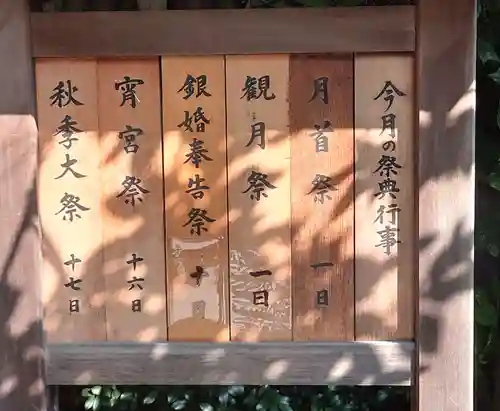 今月の祭典行事
月首祭 一日
観月祭 一日
銀婚奉告祭 十日
宵宮祭 十六日
秋季大祭 十七日